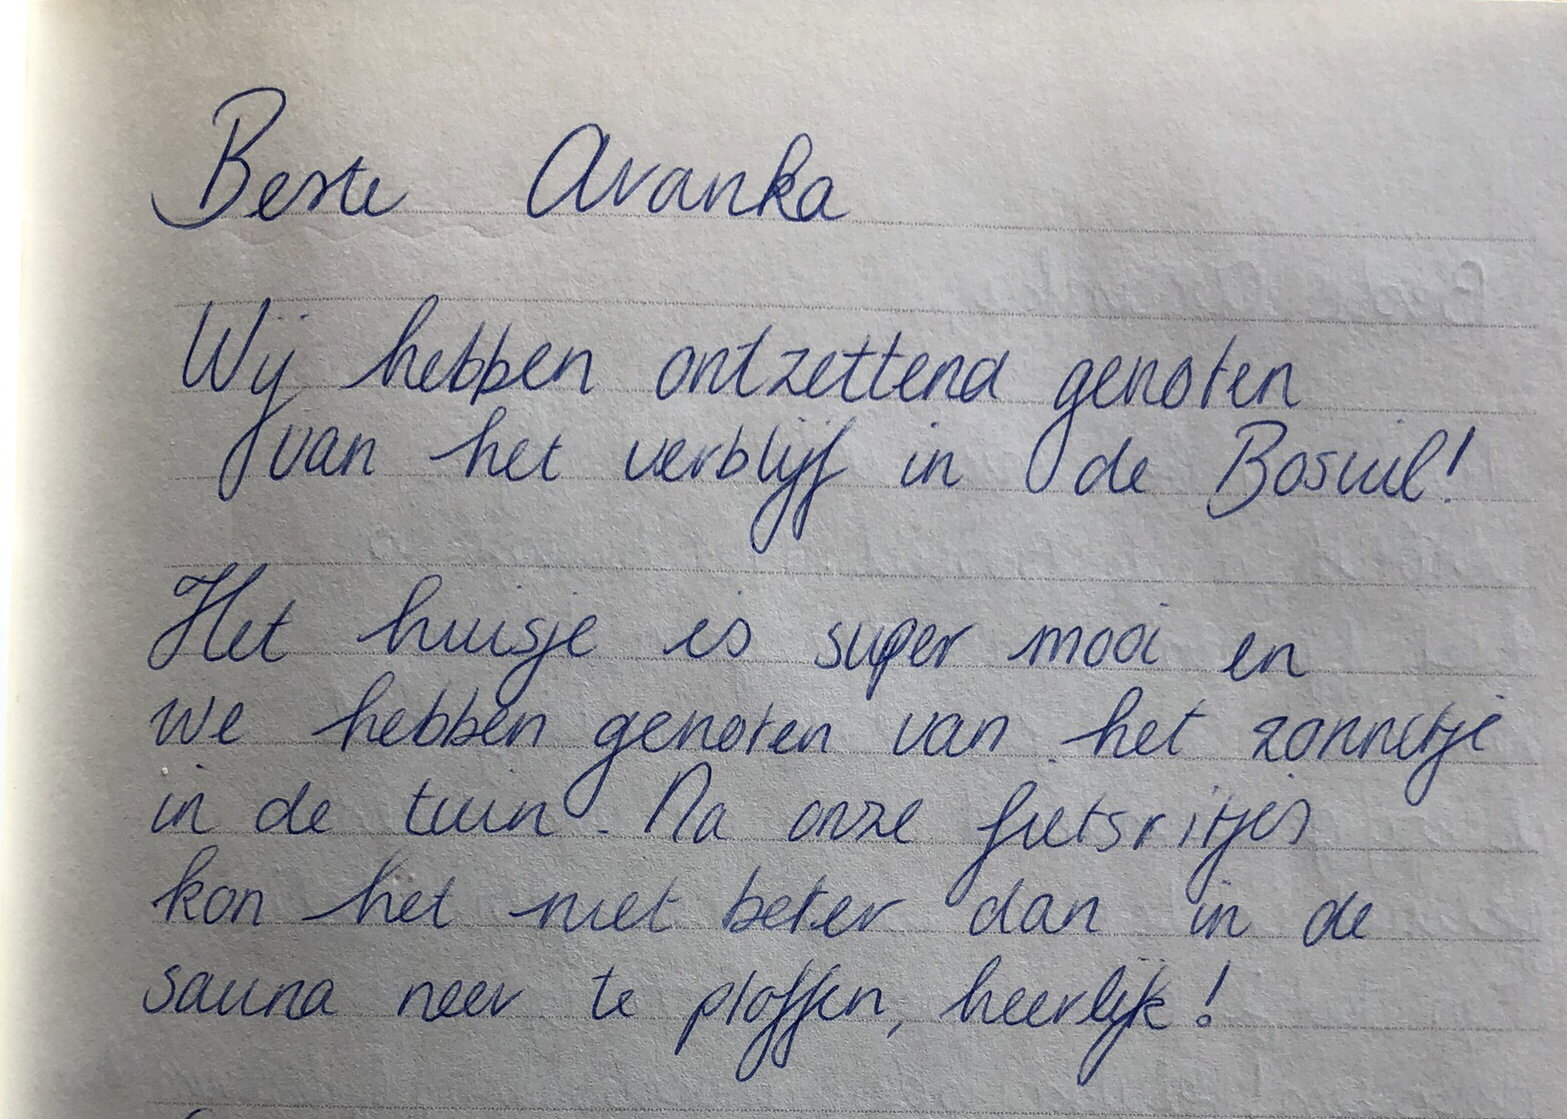 Beste Avanka
Wij hebben ontzettend genoten
van het verblijf in de Bosuil!
Het huisje is super mooi en
we hebben genoten van het zonnetje
in de tuin. Na onze fietsritjes
kon het niet beter dan in de
sauna neer te ploffen, heerlijk!